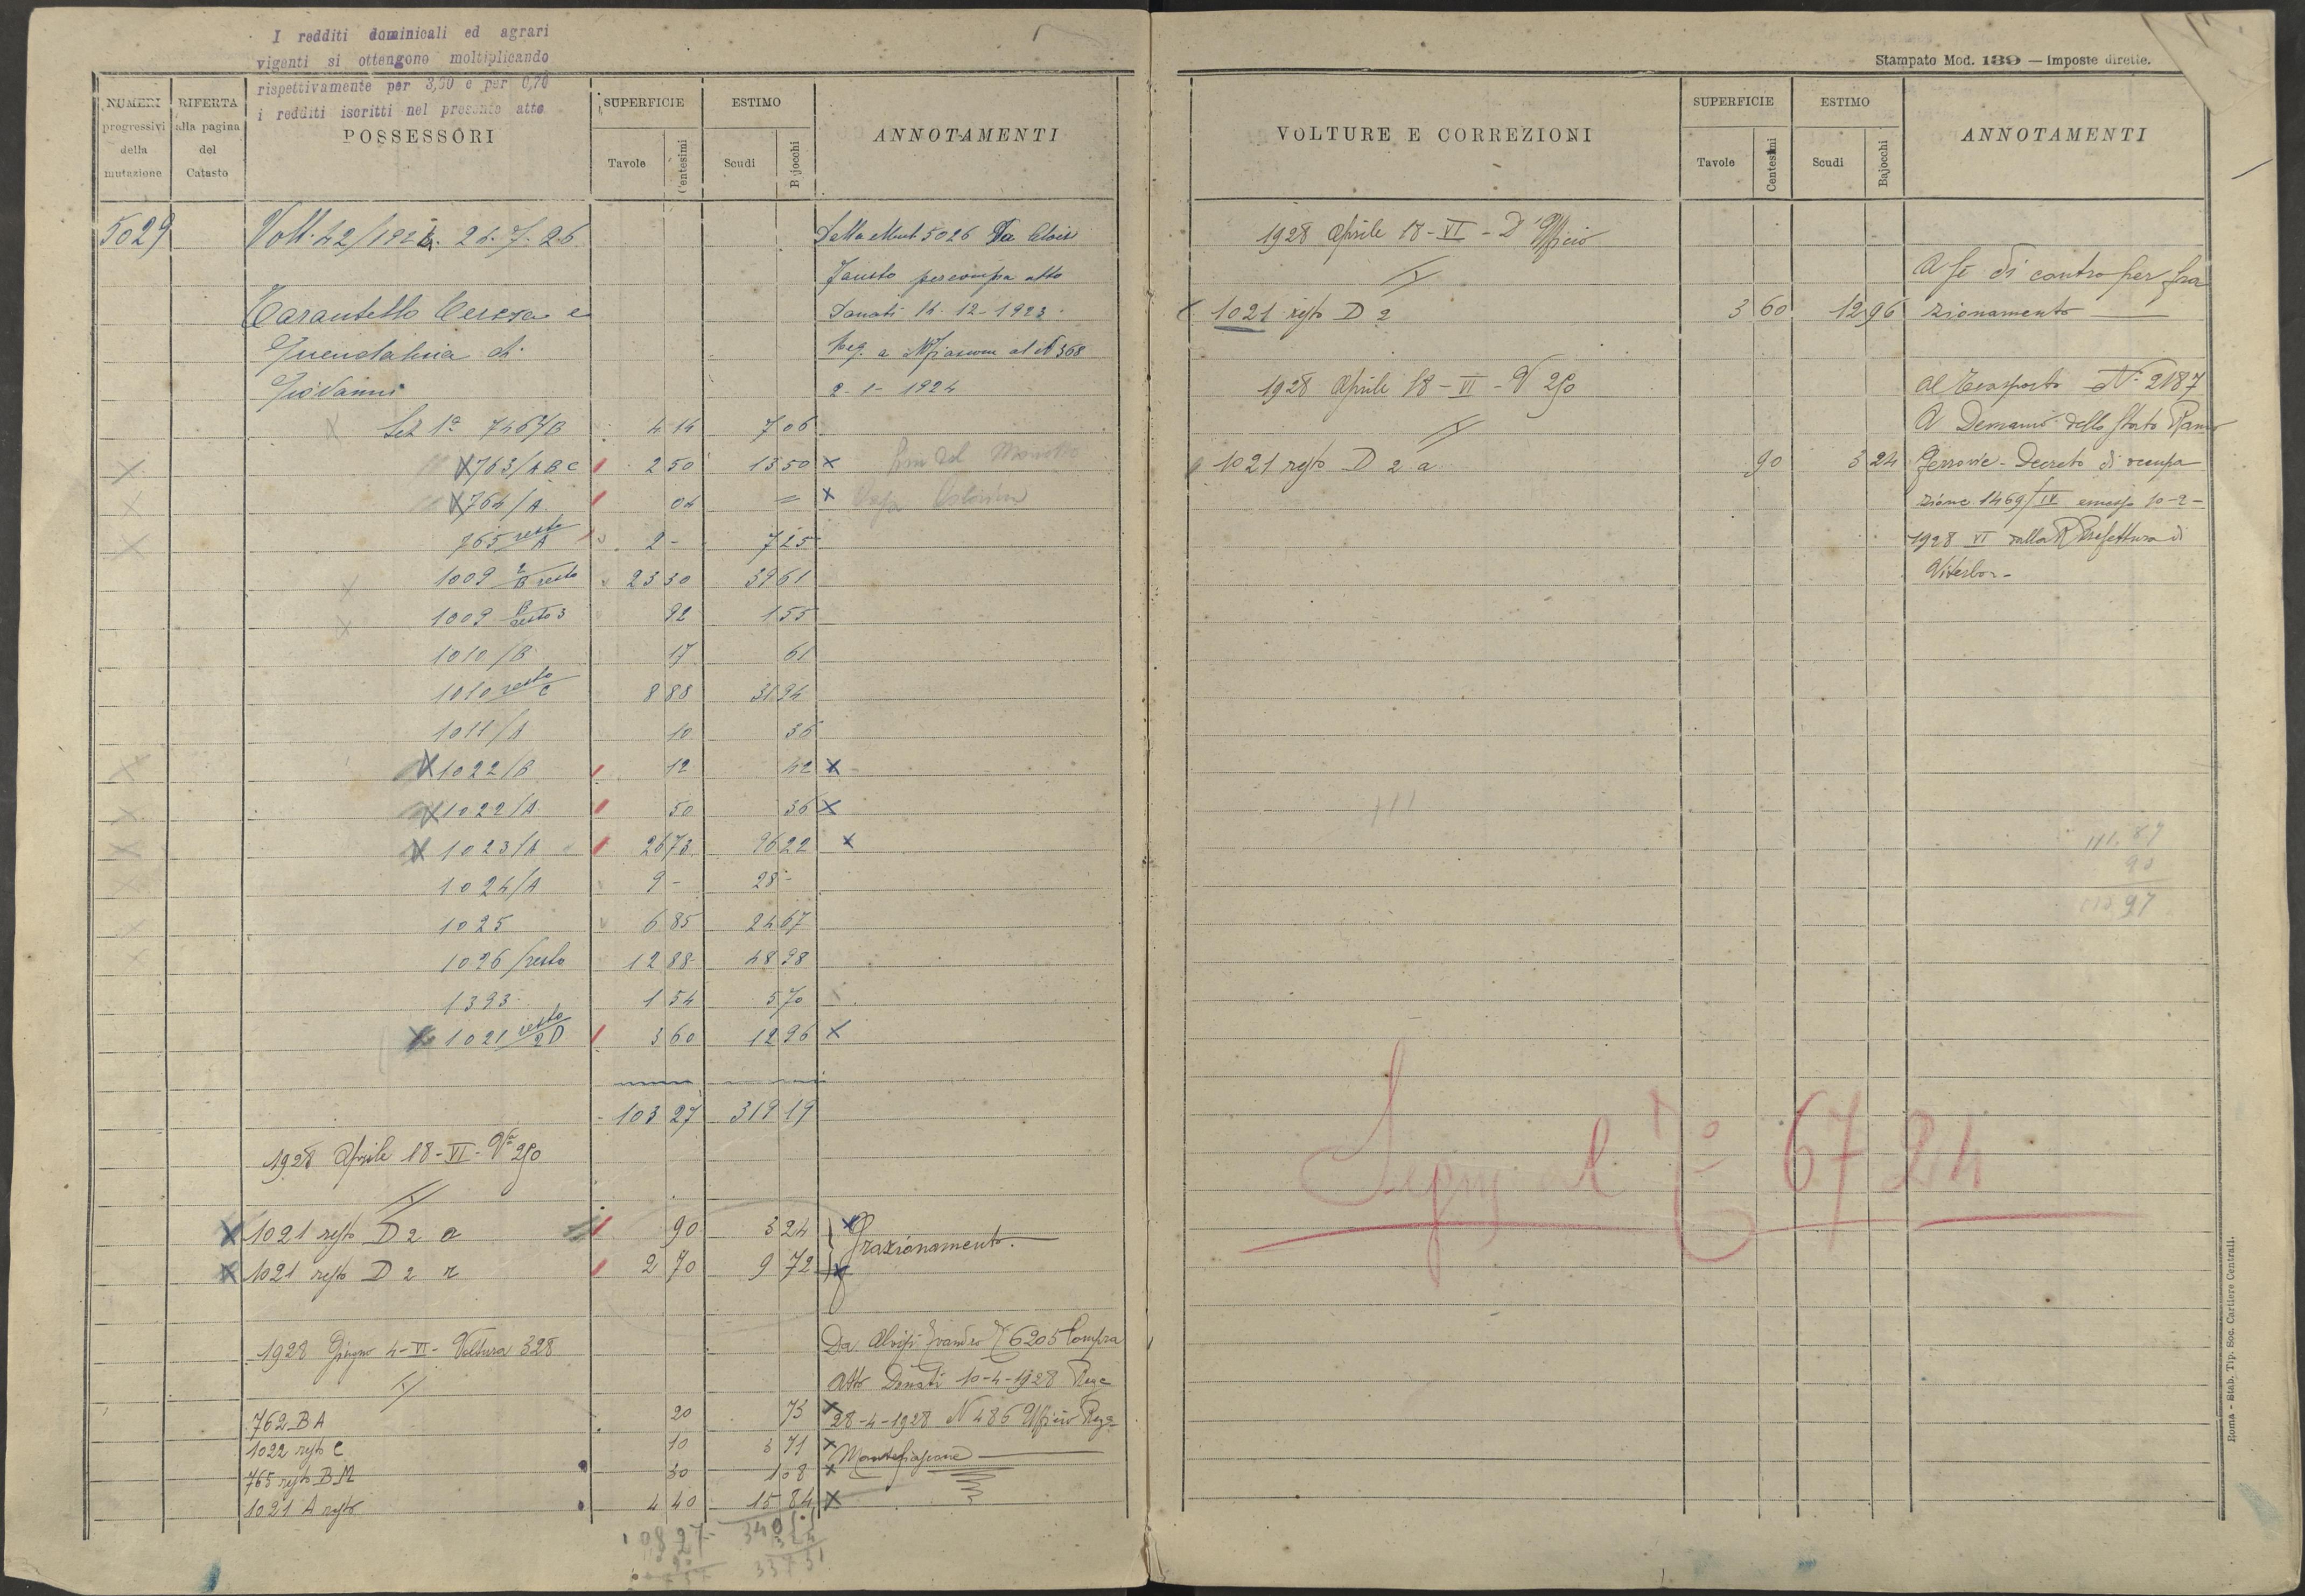 I redditi dominicali ed agrari
vigenti si ottengono moltiplicando
rispettivamente per 3,50 e per 0,70
i redditi iscritti nel presente atto
NUMERI
progressivi
della
mutazione
RIFERTA
alla pagina
del
Catasto
POSSESSORI
SUPERFICIE
Tavole
Centesimi
ESTIMO
Scudi
Bajocchi
ANNOTAMENTI
5029
26.7.26
Tarantello Teresa e
Giovanni
Dalla Mut 5026 Da
Fausto per compra atto
Donati 16-12-1923
Reg. a al N 368
2-1-1924
7467/B 4 14 7 06
X 763/ABC 2 50 13 50 X
X 764/A 04 = X
765 resto/A 2 - 7 25
1009 2/B resto 23 30 39 61
1009 92 1 55
1010/B 17 61
1010 resto/C 8 88 31 94
1011/A 10 36
X 1022/B 12 42 X
X 1022/A 50 36 X
X 1023/A 26 73 96 22 X
1024/A 9 - 28 -
1025 6 85 24 67
1026/resto 12 88 48 98
1393 1 54 5 70
X 1021 resto/2D 3 60 12 96 X
103 27 319 19
1928 Aprile 18-VI-Vª 290
X 1021 resto D 2 a 90 3 24 X
X 1021 resto D 2 r 2 70 9 72 X
Frazionamento.
1928 Giugno 4-VI-Voltura 328
Da Aloisi Evandro 6205 Compra
Atto Donati 10-4-1928 Reg
28-4-1928 N 486 Ufficio Reg
Montefiascone
762 BA 20 73 X
1022 resto C 10 3 71 X
765 resto B 30 1 08 X
1021 A resto 4 40 15 84 X
Stampato Mod. 139 — Imposte dirette.
VOLTURE E CORREZIONI
SUPERFICIE
Tavole
Centesimi
ESTIMO
Scudi
Bajocchi
ANNOTAMENTI
1928 Aprile 18-VI-D'Ufficio
1021 resto D 2 3 60 12 96
A se di contro per fra
zionamento
1928 Aprile 18-VI-V 290
1021 resto D 2 a 90 3 24
Al Trasporto N° 2187
A Demanio dello Stato Ramo
Ferrovie - Decreto di occupa
zione 1469/IV emesso 10-2-
1928 VI dalla R Prefettura di
Viterbo-
111.87
90
97
Segue al N° 6724
Roma - Stab. Tip. Soc. Cartiere Centrali.